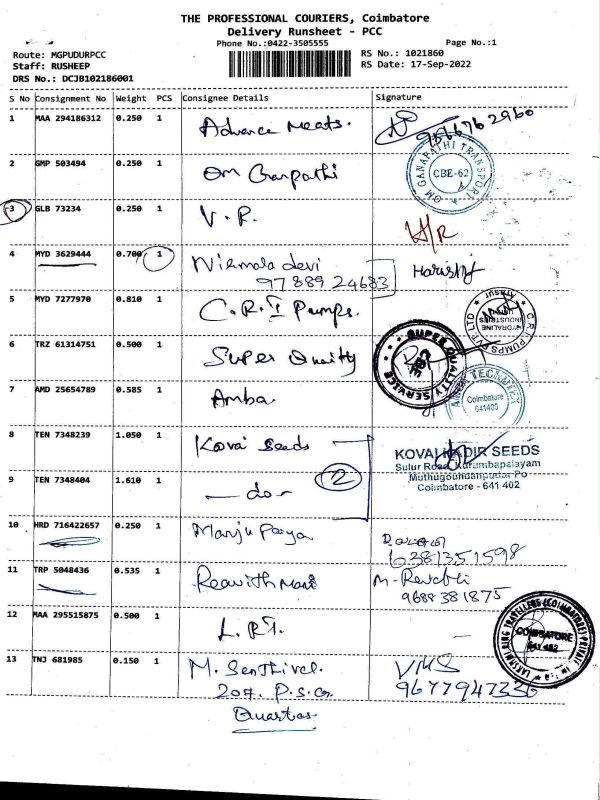 THE PROFESSIONAL COURIERS, Coimbatore
Delivery Runsheet - PCC
Phone No.:0422-3505555
Page No.:1
Route: MGPUDURPCC
Staff: RUSHEEP
DRS No.: DCJB102186001
RS No.: 1021860
RS Date: 17-Sep-2022
S No Consignment No Weight PCS Consignee Details Signature
1 MAA 294186312 0.250 1 Advance Meats.
2 GMP 503494 0.250 1 OM Ganpathi
OM GANAPATHI TRANSPORT
CBE-62
3 GLB 73234 0.250 1 V.R.
4 MYD 3629444 0.700 1 Nirmala devi
97889 24683
5 MYD 7277970 0.810 1 C.R.I Pumps.
C.R.I. PUMPS PVT LTD
6 TRZ 61314751 0.500 1 Super Quality
SUPER QUALITY SERVICE
7 AMD 25654789 0.585 1 Amba
Coimbatore
641405
8 TEN 7348239 1.050 1 Kovai Seeds
2
KOVAI KADIR SEEDS
Sulur Road, Kurumbapalayam
Muthugoundanpudur Po
Coimbatore - 641 402
9 TEN 7348404 1.610 1 - do -
10 HRD 716422657 0.250 1 Manju Priya
6381351598
11 TRP 5048436 0.535 1
9688381875
12 MAA 295515875 0.500 1 L.R.T.
COIMBATORE
641 402
13 TNJ 681985 0.150 1 M. Senthivel.
207. P.S.G.
Quarters.
VMS
9677947336